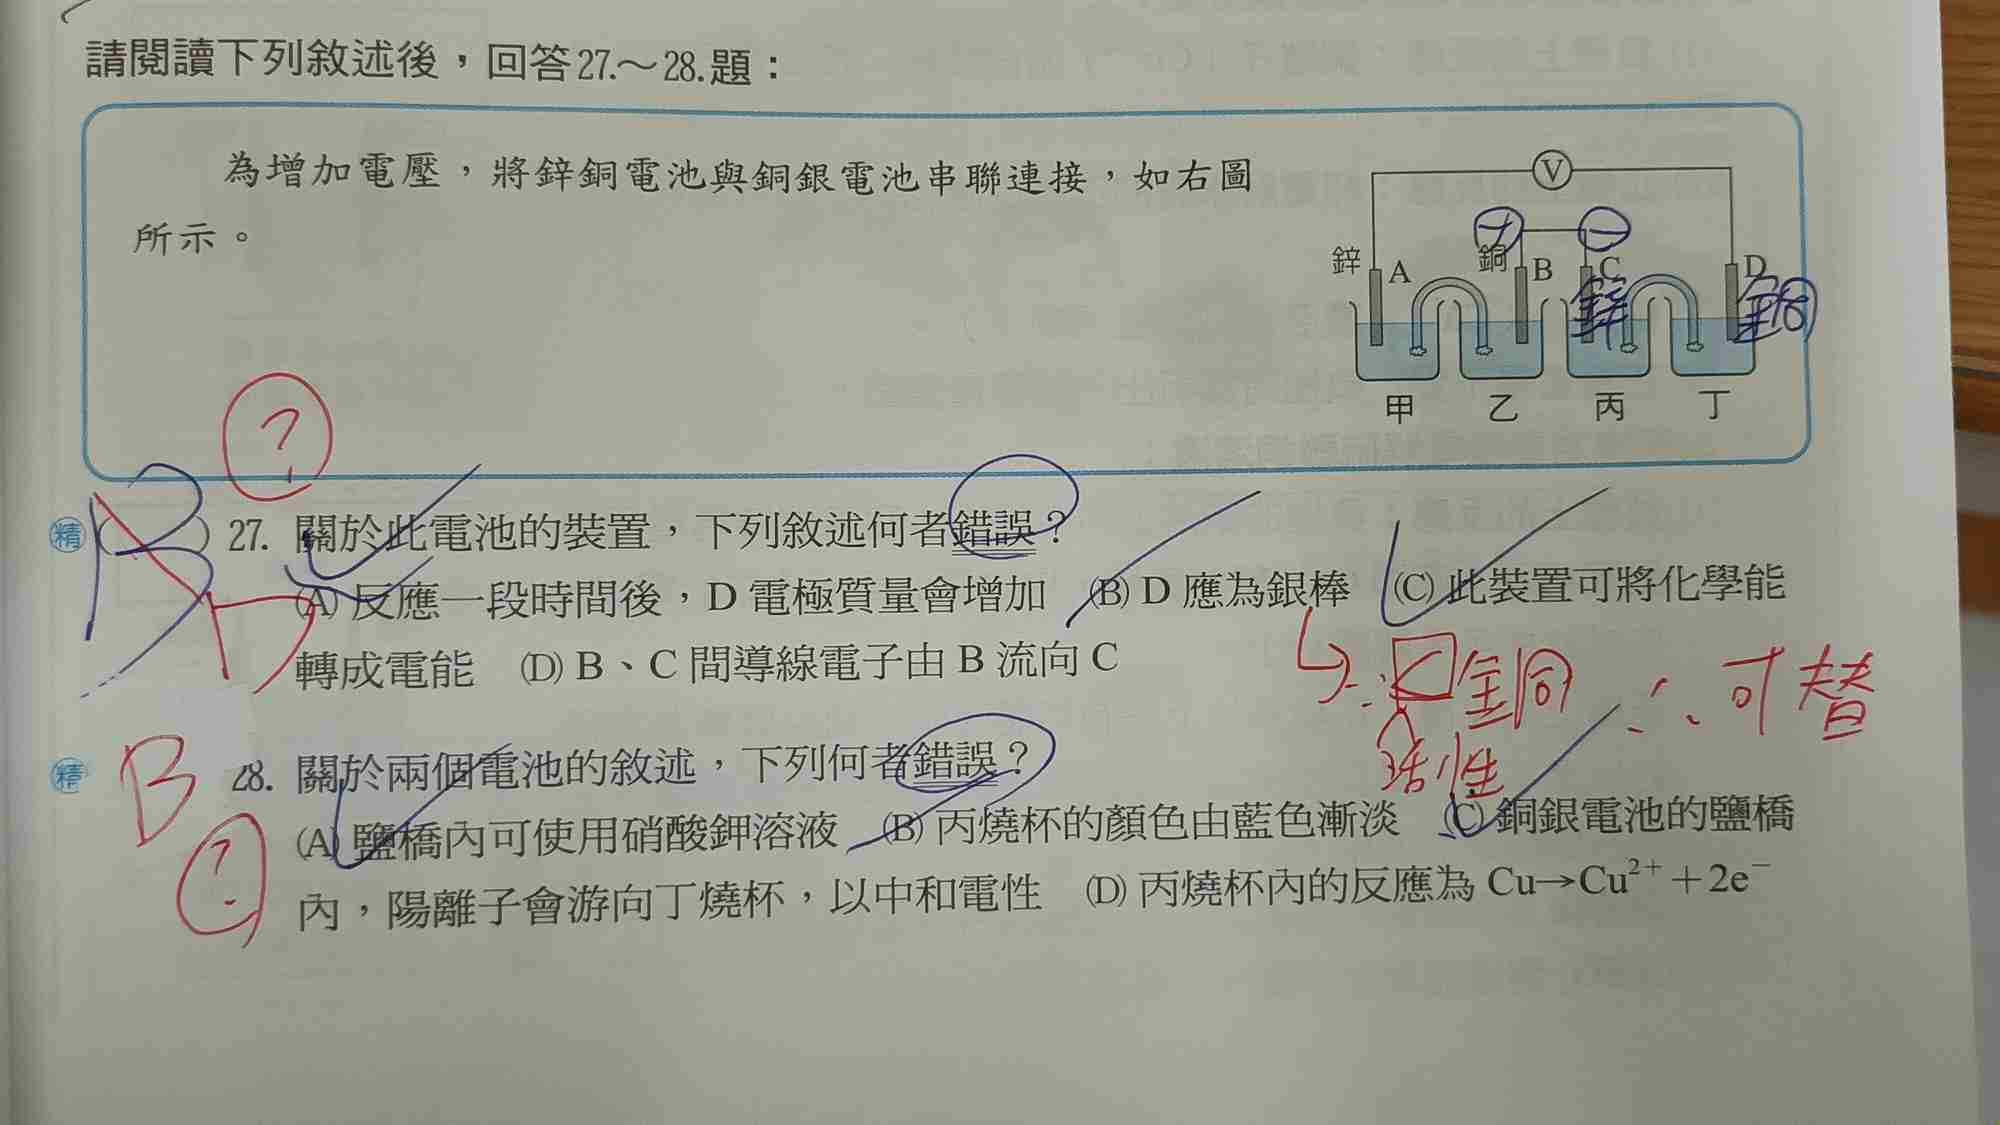 請閱讀下列敘述後，回答27.～28.題：
為增加電壓，將鋅銅電池與銅銀電池串聯連接，如右圖
所示。
V
＋ －
鋅 A 銅 B C D
鋅
甲 乙 丙 丁
?
精 ( B ) 27. 關於此電池的裝置，下列敘述何者錯誤？
D
(A) 反應一段時間後，D 電極質量會增加 (B) D 應為銀棒 (C) 此裝置可將化學能
轉成電能 (D) B、C 間導線電子由 B 流向 C
銅 ∴可替
活性
精 B 28. 關於兩個電池的敘述，下列何者錯誤？
?
(A) 鹽橋內可使用硝酸鉀溶液 (B) 丙燒杯的顏色由藍色漸淡 (C) 銅銀電池的鹽橋
內，陽離子會游向丁燒杯，以中和電性 (D) 丙燒杯內的反應為 Cu→Cu²⁺＋2e⁻